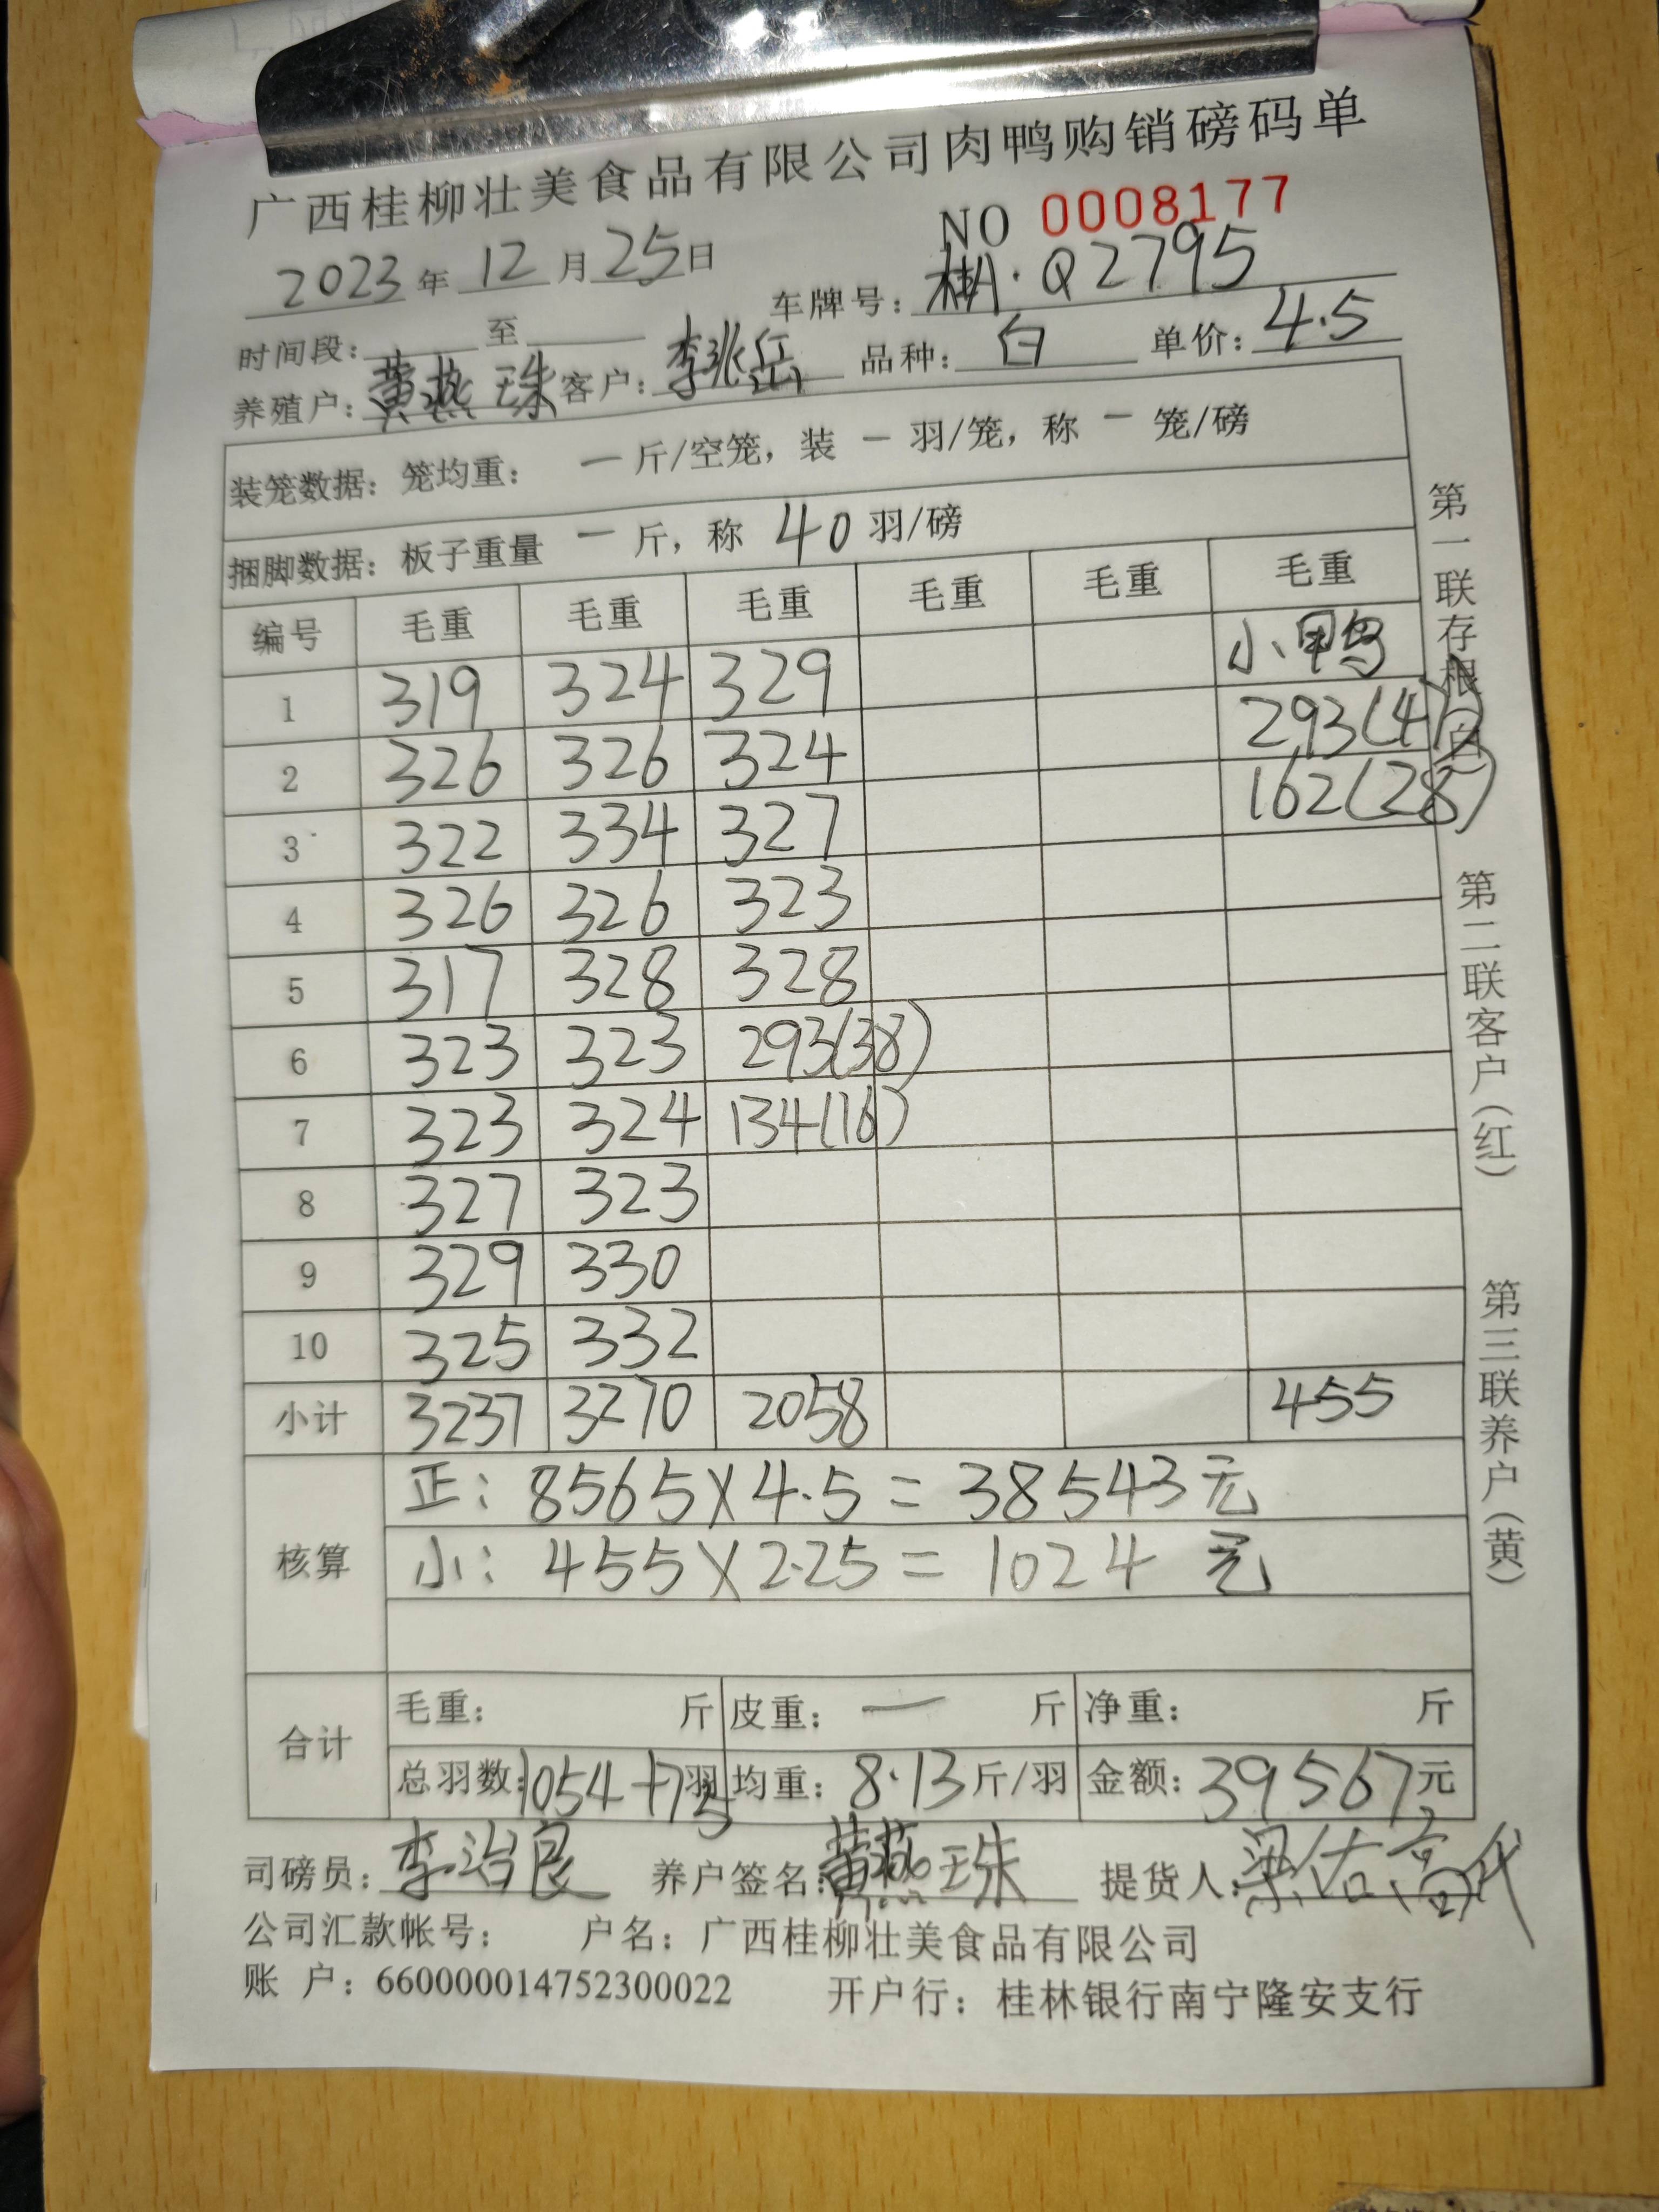 广西桂柳壮美食品有限公司肉鸭购销磅码单
NO 0008177
2023年12月25日
车牌号: 桂A·Q2795
时间段: 至
养殖户: 黄燕珠 客户: 李兆岳 品种: 白 单价: 4.5
装笼数据: 笼均重: 一 斤/空笼, 装 一 羽/笼, 称 一 笼/磅
捆脚数据: 板子重量 一 斤, 称 40 羽/磅
编号 毛重 毛重 毛重 毛重 毛重 毛重
1 319 324 329 小鸭
2 326 326 324 293(47)
3 322 334 327 162(28)
4 326 326 323
5 317 328 328
6 323 323 293(38)
7 323 324 134(16)
8 327 323
9 329 330
10 325 332
小计 3237 3270 2058 455
核算 正: 8565×4.5=38543元
小: 455×2.25=1024元
合计 毛重: 斤 皮重: 一 斤 净重: 斤
总羽数: 1054+75羽 均重: 8.13斤/羽 金额: 39567元
司磅员: 李治良 养户签名: 黄燕珠 提货人: 梁佑高代
公司汇款帐号: 户名: 广西桂柳壮美食品有限公司
账 户: 660000014752300022 开户行: 桂林银行南宁隆安支行
第一联存根(白) 第二联客户(红) 第三联养户(黄)